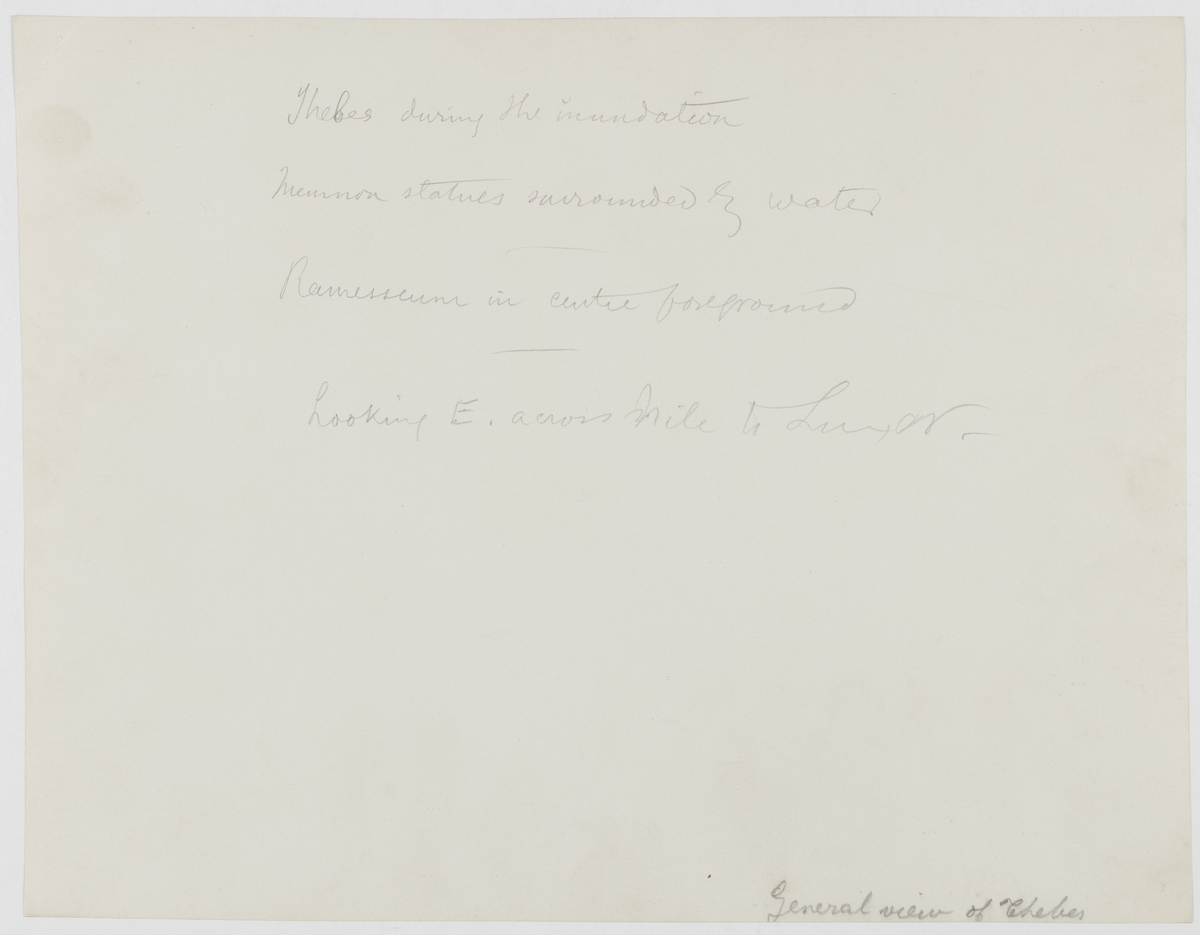 Thebes during the inundation
Memnon statues surrounded by water
Ramesseum in centre foreground
Looking E. across Nile to Luxor -
General view of Thebes